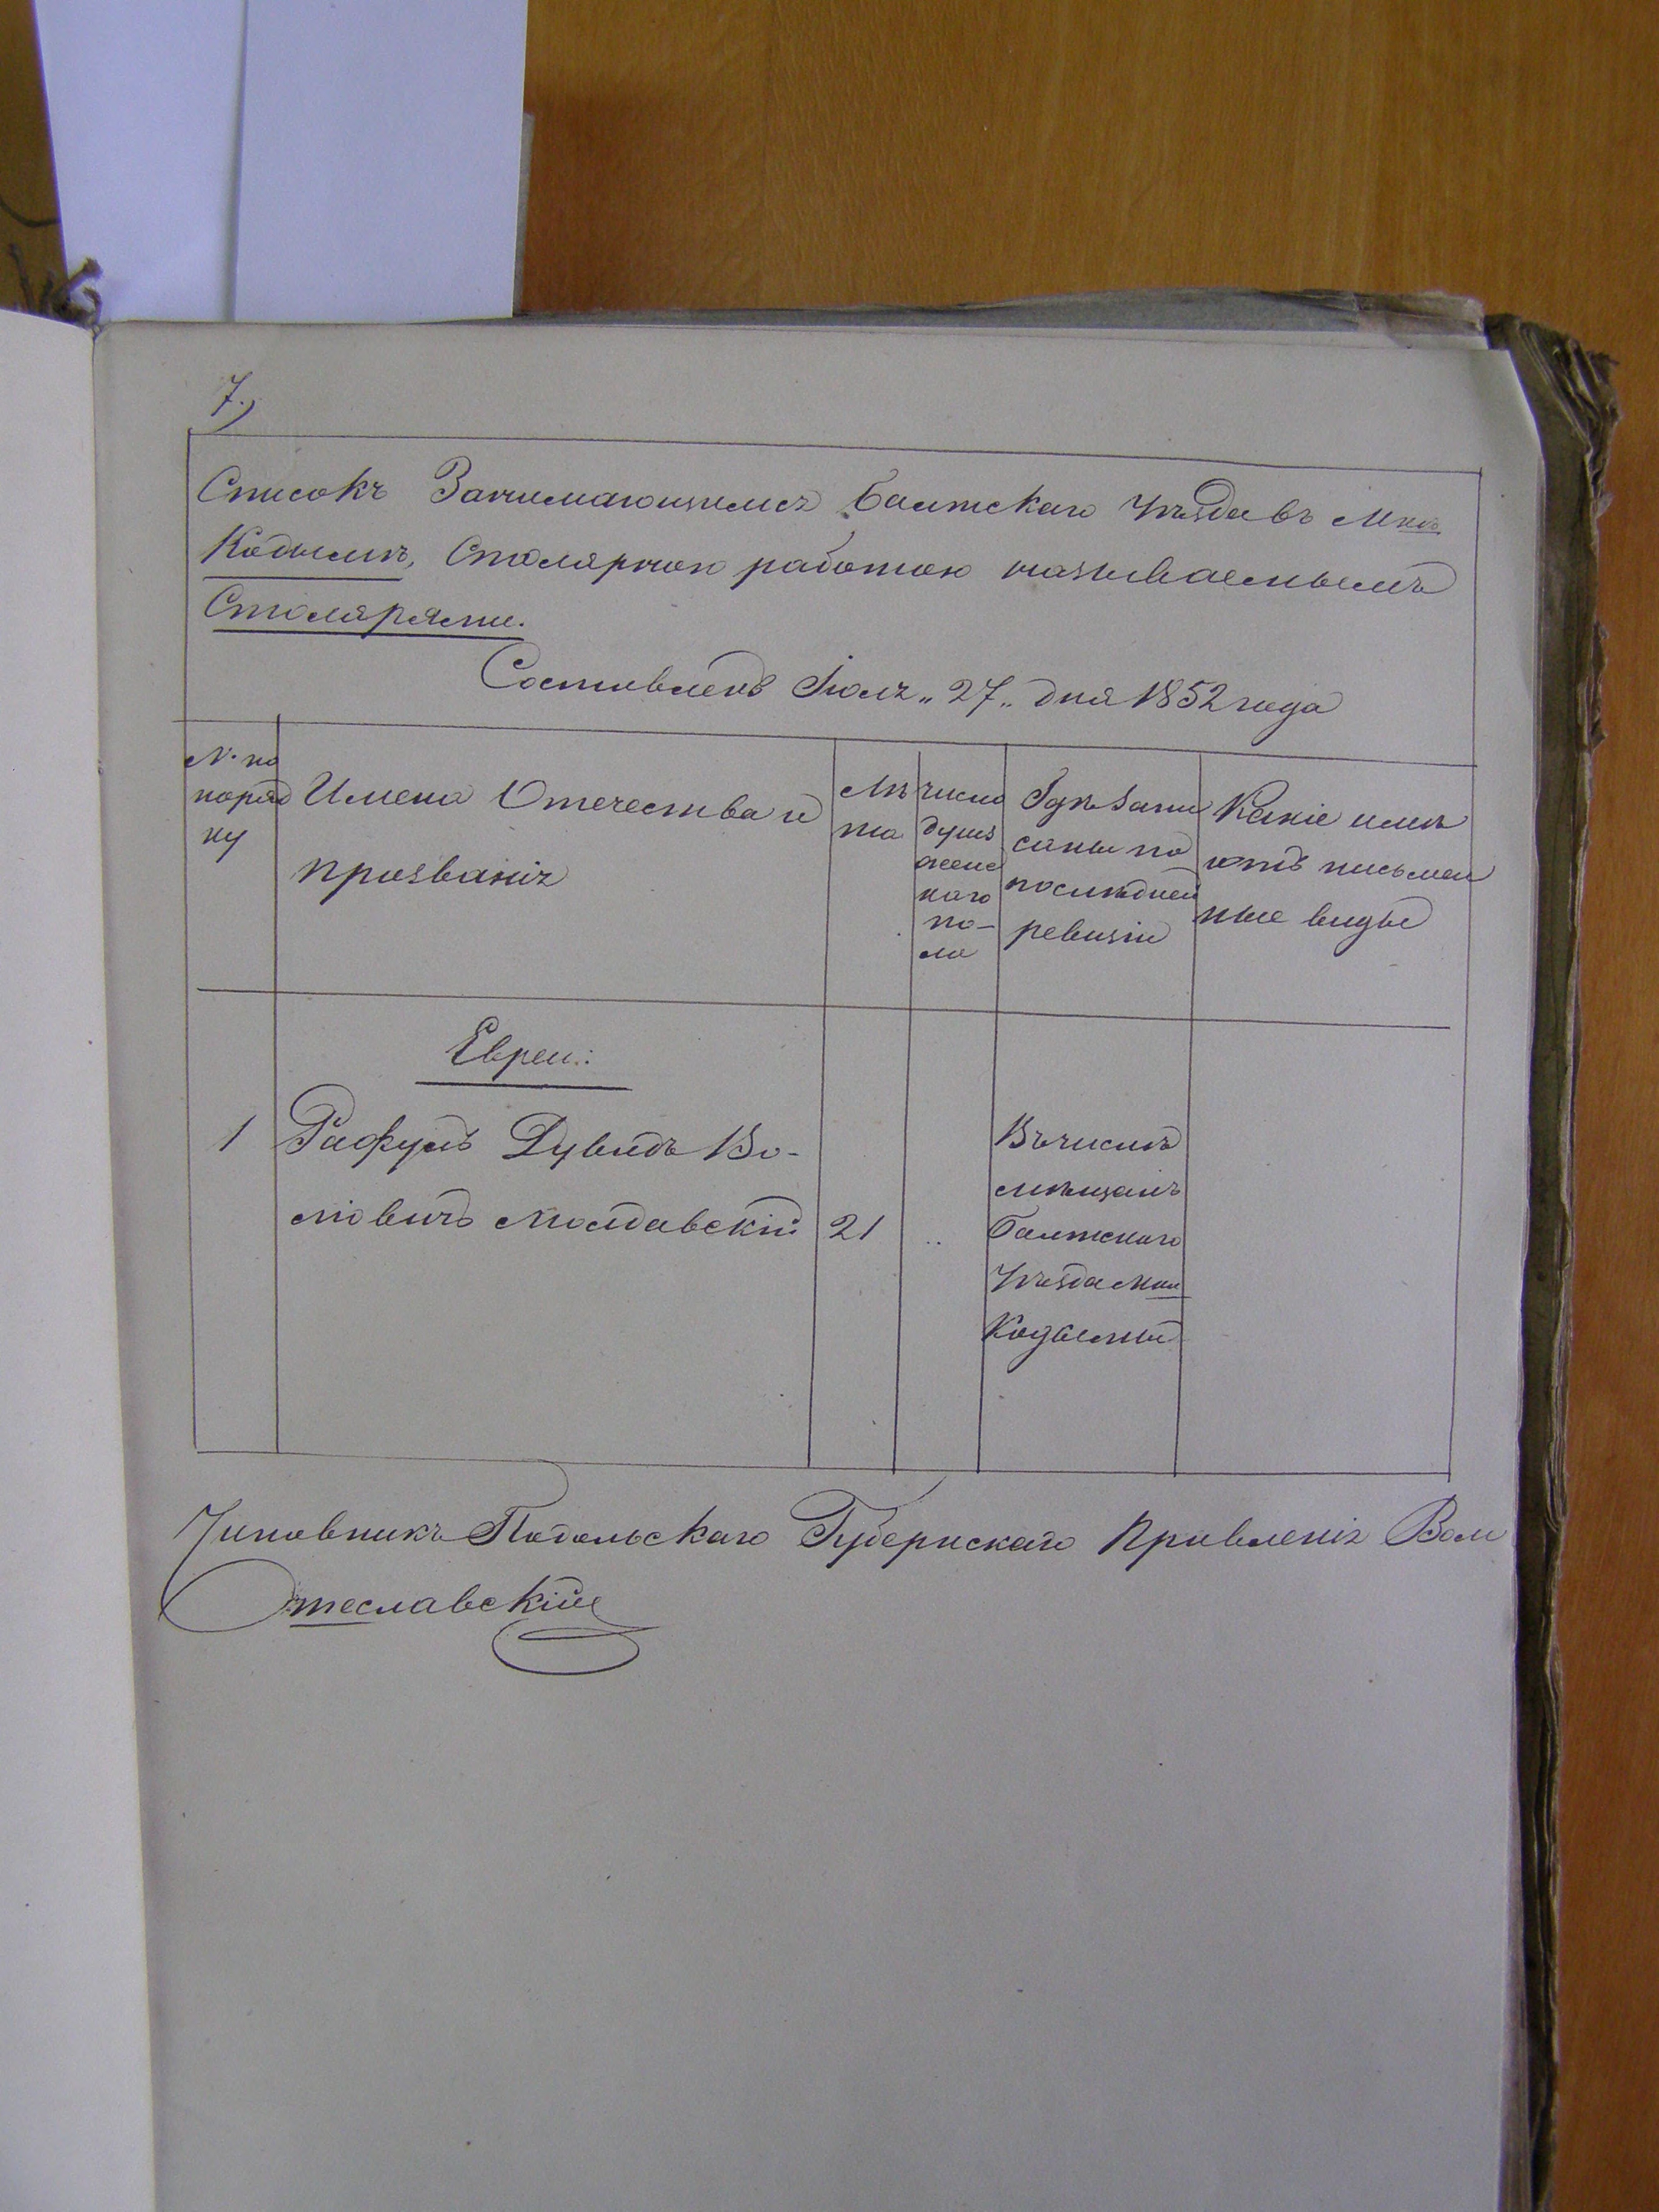 7.)
Списокъ Занимающимся Балтскаго Уѣзда въ Мкѣ
Кодымѣ, Столярною работою называемымъ
Столярами.
Составленъ Іюля „ 27 „ дня 1852 года
№ по
поряд
ку
Имена Отечества и
прозванія
Лѣ
та
Число
душъ
женс
каго
по-
ла
Гдѣ запи
саны по
послѣдней
ревизіи
Какіе имѣ
ютъ письмен
ные виды
Евреи:
1
Рафулъ Дувидъ Во-
лювичъ Молдавскій
21
„
Въ числѣ
мѣщанъ
Балтскаго
Уѣзда Мки
Кодымы
Чиновникъ Подольскаго Губернскаго Правленія